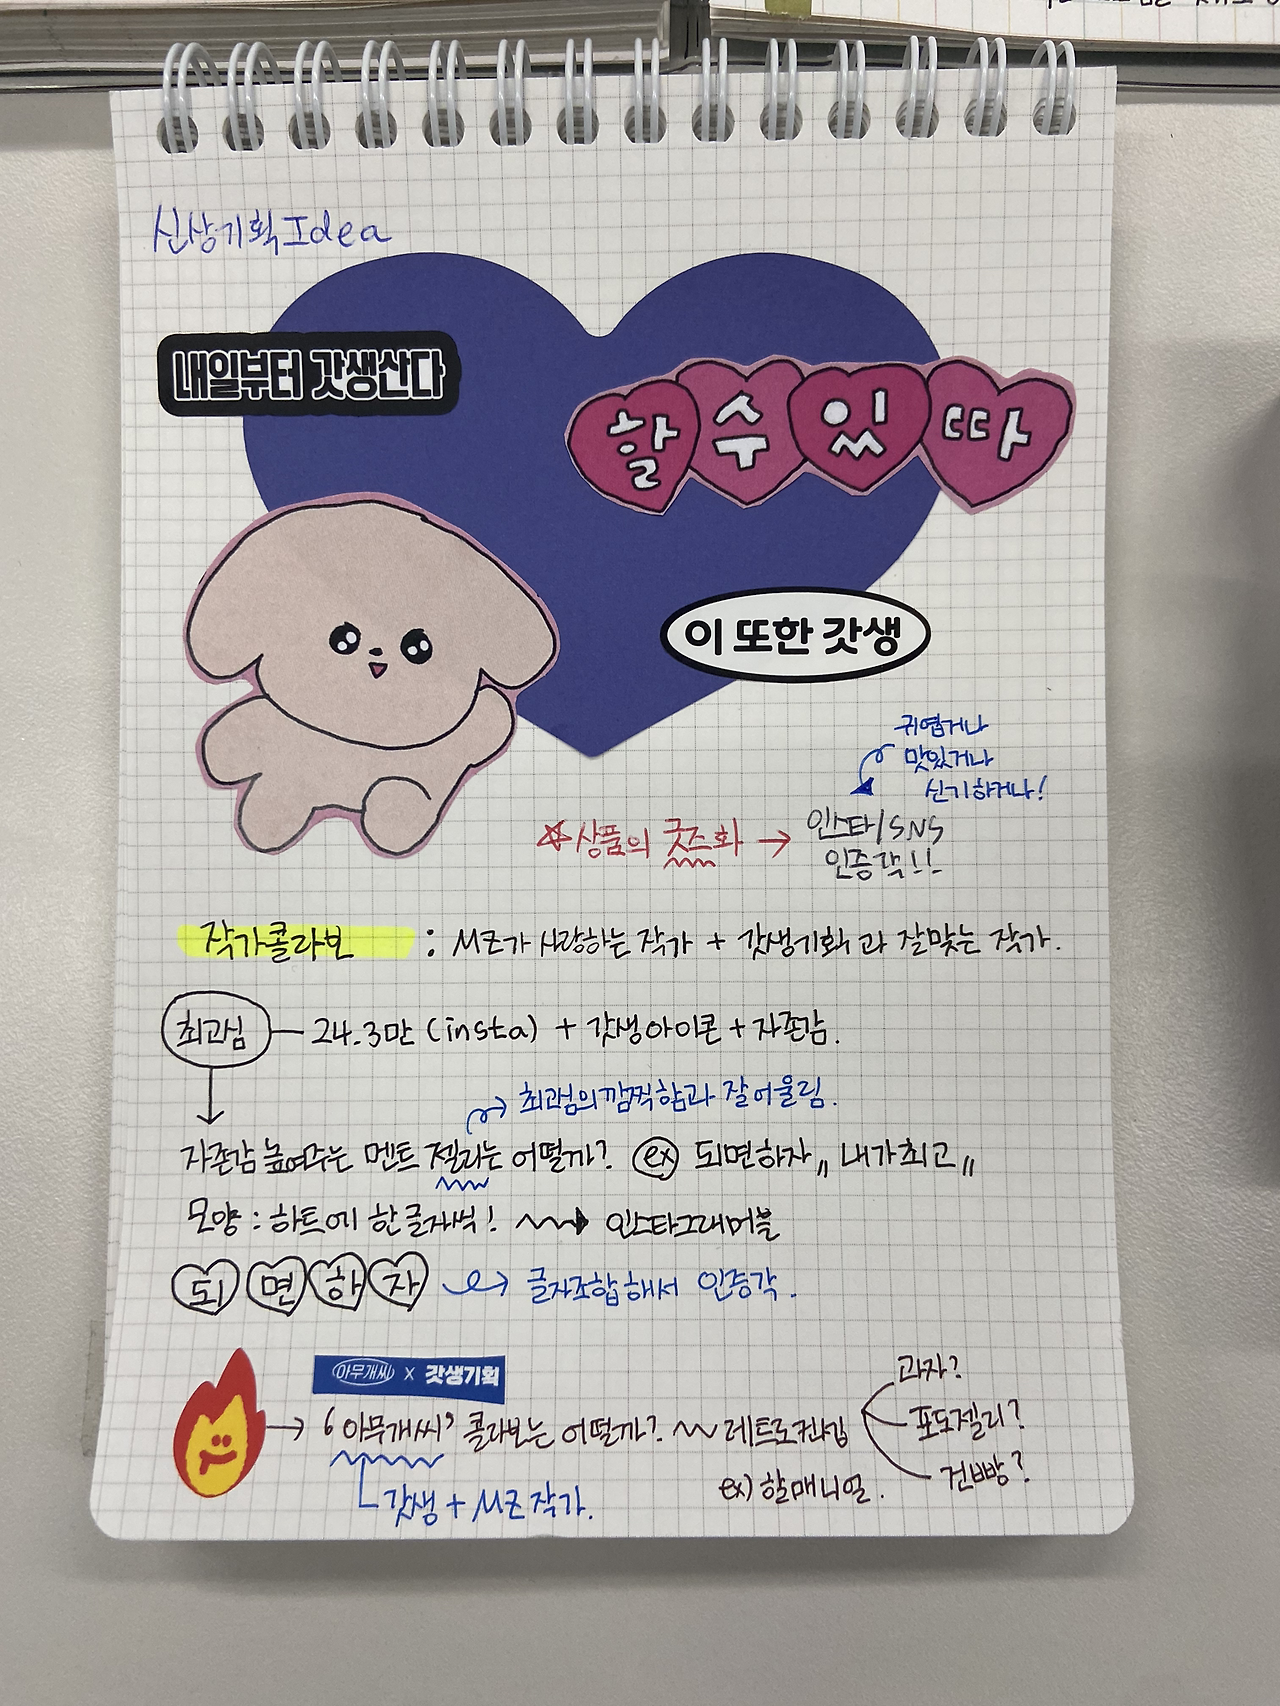 신상기획 Idea
내일부터 갓생산다
할 수 있 따
이 또한 갓생
귀엽거나
맛있거나
신기하거나!
☆상품의 굿즈화 → 인스타/SNS
인증각!!
작가콜라보 : MZ가 사랑하는 작가 + 갓생기획과 잘맞는 작가.
최고심 — 24.3만 (insta) + 갓생아이콘 + 자존감.
→ 최고심의 깜찍함과 잘어울림.
자존감 높여주는 멘트 젤리는 어떨까? ex 되면하자,, 내가최고,,
모양 : 하트에 한글자씩! → 인스타그래머블
되 면 하 자 → 글자조합해서 인증각.
아무개씨 X 갓생기획
→ '아무개씨' 콜라보는 어떨까? 레트로컨셉
과자?
포도젤리?
건빵?
ex) 할매니얼.
갓생 + MZ작가.